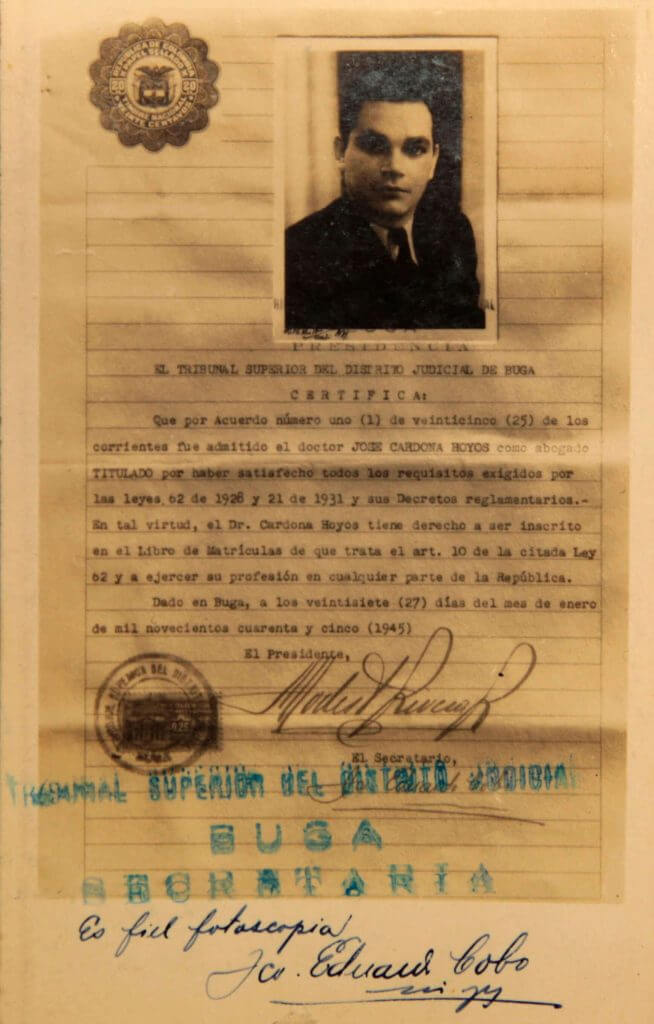 REPUBLICA DE COLOMBIA
PAPEL SELLADO
20 20
TIMBRE NACIONAL
VEINTE CENTAVOS
PRESIDENCIA
EL TRIBUNAL SUPERIOR DEL DISTRITO JUDICIAL DE BUGA
CERTIFICA:
Que por Acuerdo número uno (1) de veinticinco (25) de los
corrientes fue admitido el doctor JOSE CARDONA HOYOS como abogado
TITULADO por haber satisfecho todos los requisitos exigidos por
las leyes 62 de 1928 y 21 de 1931 y sus Decretos reglamentarios.-
En tal virtud, el Dr. Cardona Hoyos tiene derecho a ser inscrito
en el Libro de Matrículas de que trata el art. 10 de la citada Ley
62 y a ejercer su profesión en cualquier parte de la República.
Dado en Buga, a los veintisiete (27) días del mes de enero
de mil novecientos cuarenta y cinco (1945)
El Presidente,
El Secretario,
TRIBUNAL SUPERIOR DEL DISTRITO JUDICIAL
BUGA
SECRETARIA
Es fiel fotoscopia
Fco. Eduardo Cobo